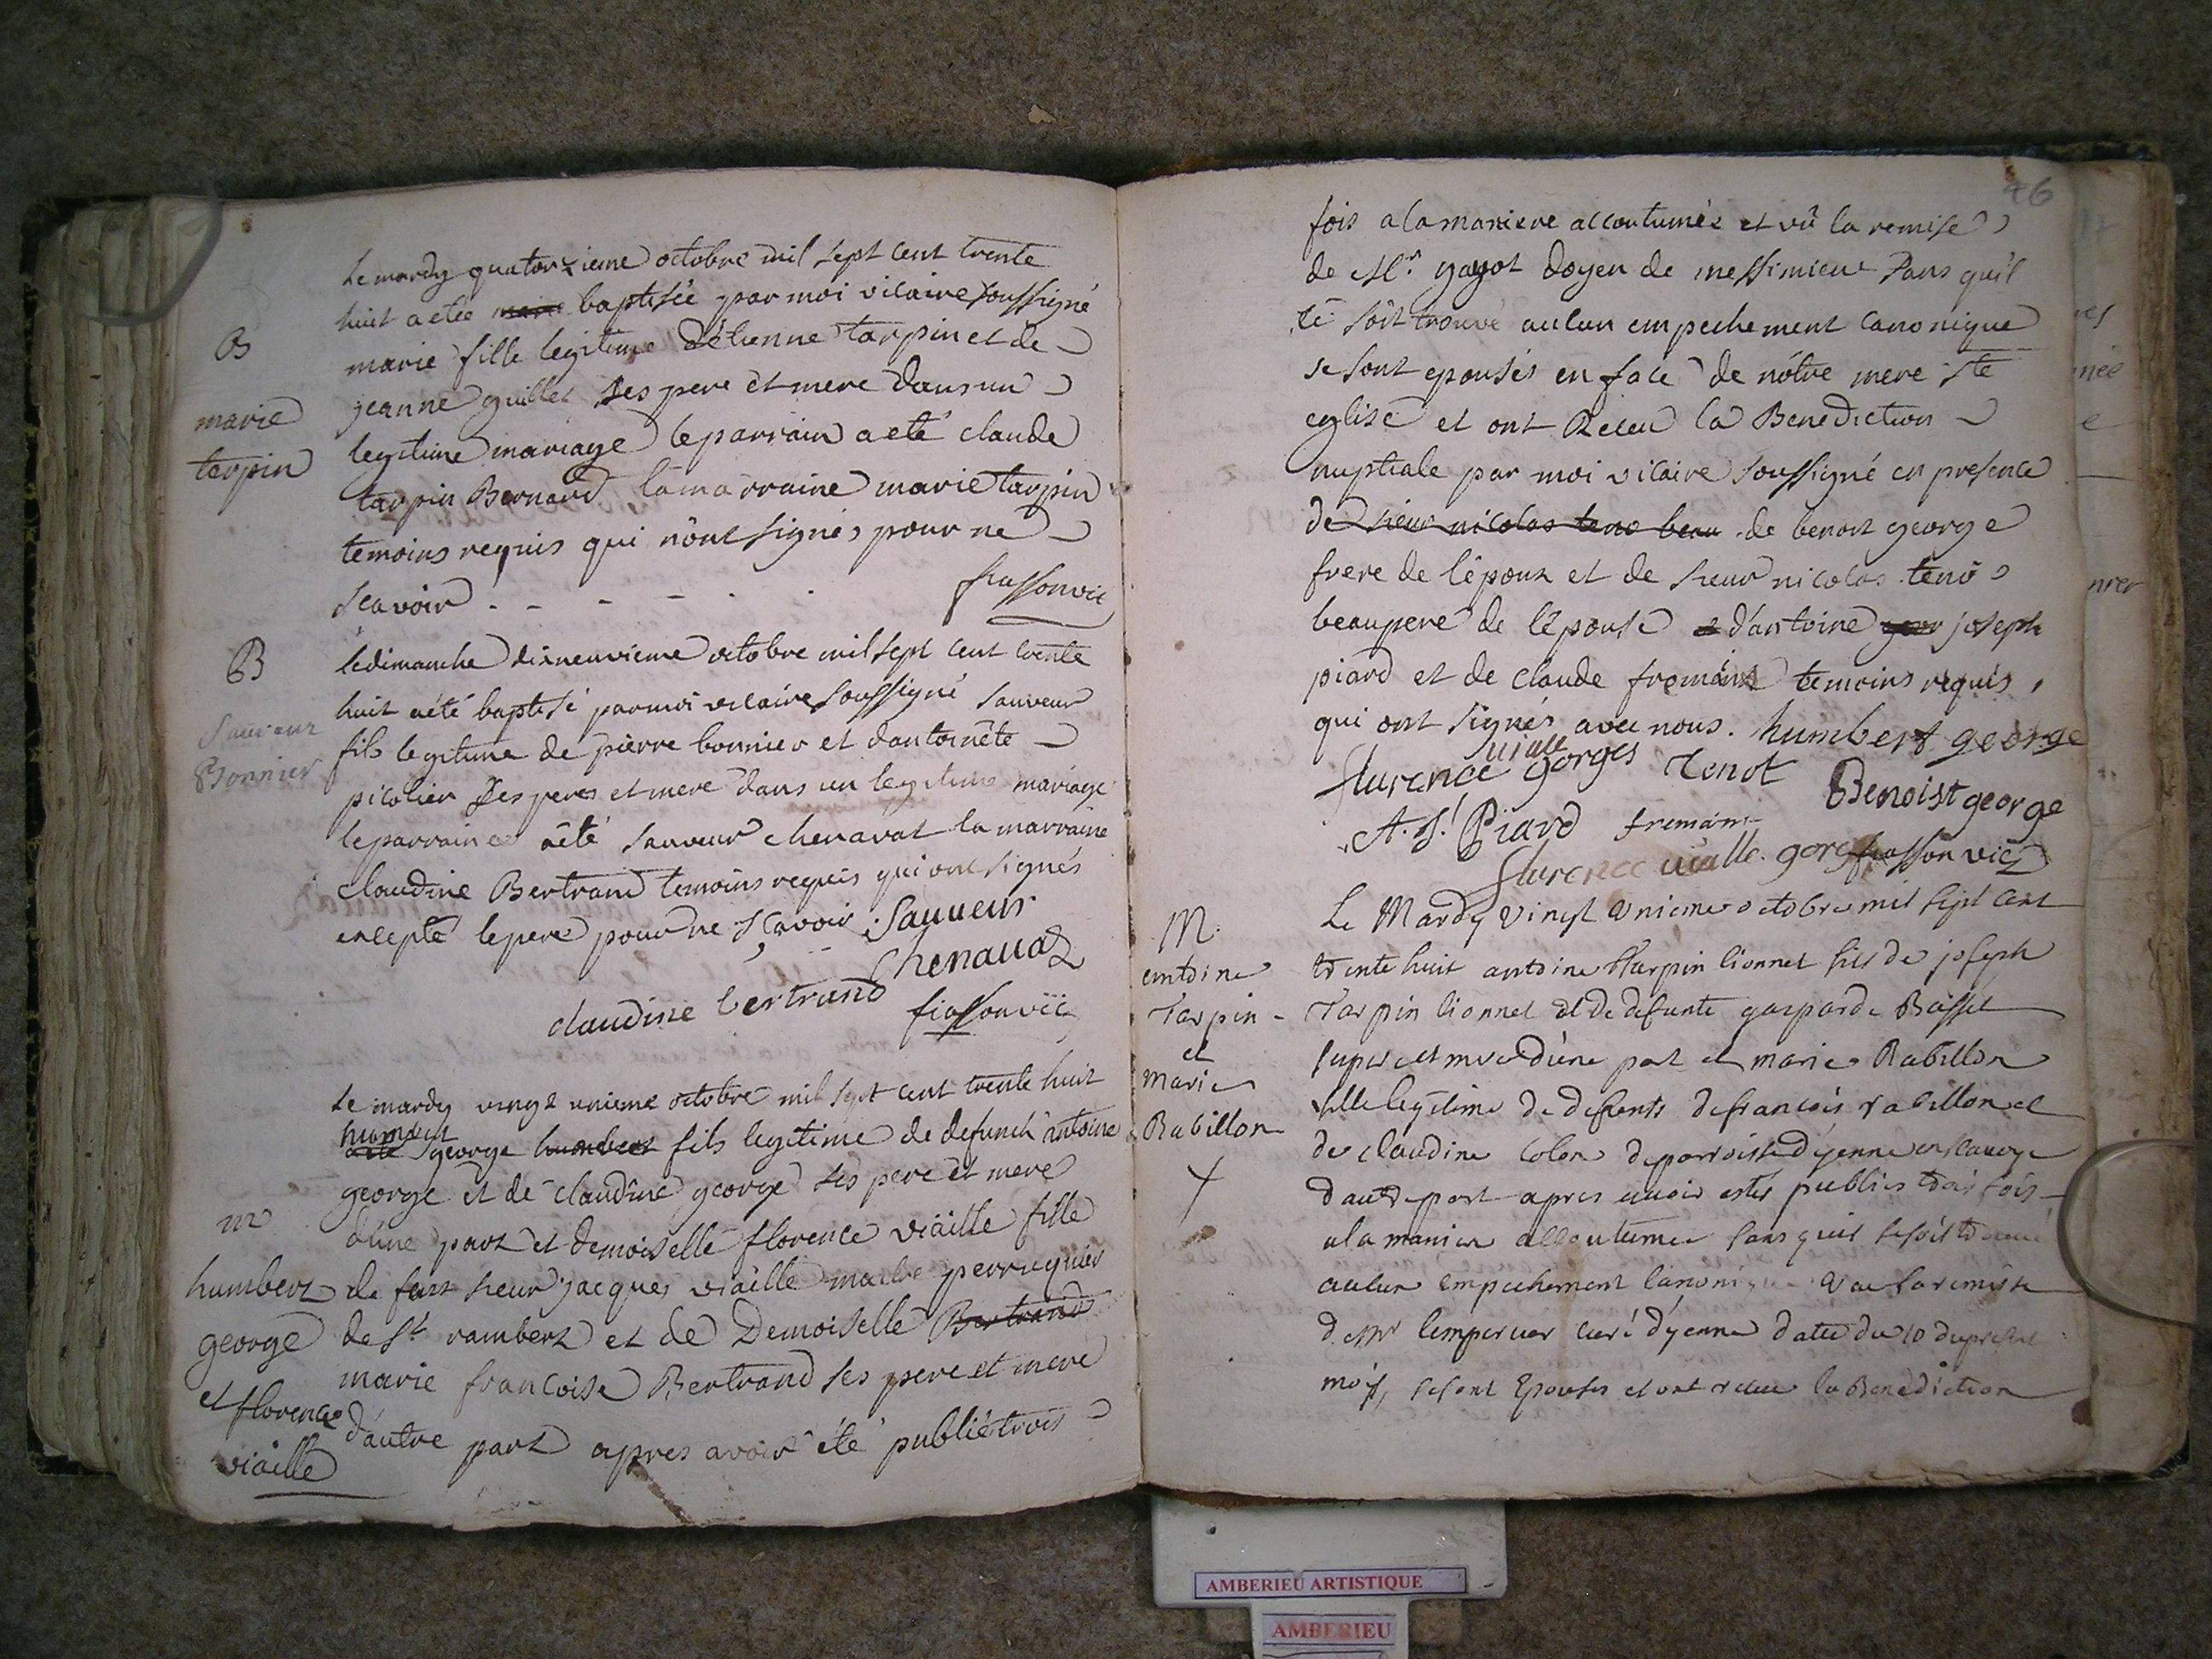 B
marie
tarpin
Le mardy quatorzieme octobre mil sept cent trente
huit a etée baptisée par moi vicaire soussigné
marie fille legitime d'étienne tarpin et de
jeanne guillet ses pere et mere dans un
legitime mariage le parrain a eté claude
tarpin Bernard la marraine marie tarpin
temoins requis qui n'ont signés pour ne
scavoir . - - - . .
frassonvic
B
Sauveur
Bonnier
le dimanche dixneuvieme octobre mil sept cent trente
huit a été baptisé par moi vicaire soussigné sauveur
fils legitime de pierre bonnier et d'antoinéte
picolier ses peres et mere dans un legitime mariage
le parrain a été sauveur chenavat la marraine
claudine Bertrand temoins requis qui ont signés
excepté le pere pour ne scavoir . Sauveur
Chenavat
claudine bertrand frassonvic
m
humbert
george
et florence
viaille
Le mardy vingt unieme octobre mil sept cent trente huit
humbert
george humbert fils legitime de defunct antoine
george et de claudine george ses pere et mere
d'une part et demoiselle florence viaille fille
de feu sieur jacques viaille maitre perruquier
de St rambert et de Demoiselle Bertrand
marie francoise Bertrand ses pere et mere
d'autre part apres avoir été publié trois
46
fois a la maniere accoutumée et vû la remise
de Mr. gayot doyen de messimieu sans qu'il
se soit trouvé aucun empechement canonique
se sont epousés en face de nôtre mere ste
eglise et ont Receu la Benediction
nuptiale par moi vicaire soussigné en presence
de sieur nicolas teno beau de benoit george
frere de l'époux et de sieur nicolas teno
beaupere de l'épouse d'antoine joseph
piard et de claude fromant temoins requis,
qui ont signés avec nous. humbert george
vialle
flurence gorges Tenot Benoist george
A. J. Piard fremain
flurence vialle. gorge frassonvic
M.
antoine
Tarpin
et
Marie
Rabillon
Le Mardy vingt unieme octobre mil sept cent
trente huit antoine Tarpin lionnet fils de joseph
Tarpin lionnet et de defunte gasparde Basset
ses pere et mere d'une part et marie Rabillon
fille legitime de defunts de francois rabillon et
de claudine colon de parroisse d'yenne en savoye
d'autre part apres avoir estés publiés trois fois
a la maniere accoutumée sans qu'il se soit trouvé
aucun empechement canonique vue la remise
de Mr lempereur curé d'yenne datée du 10 du present
mois, se sont Epousés et ont receu la Benediction
AMBERIEU ARTISTIQUE
AMBERIEU